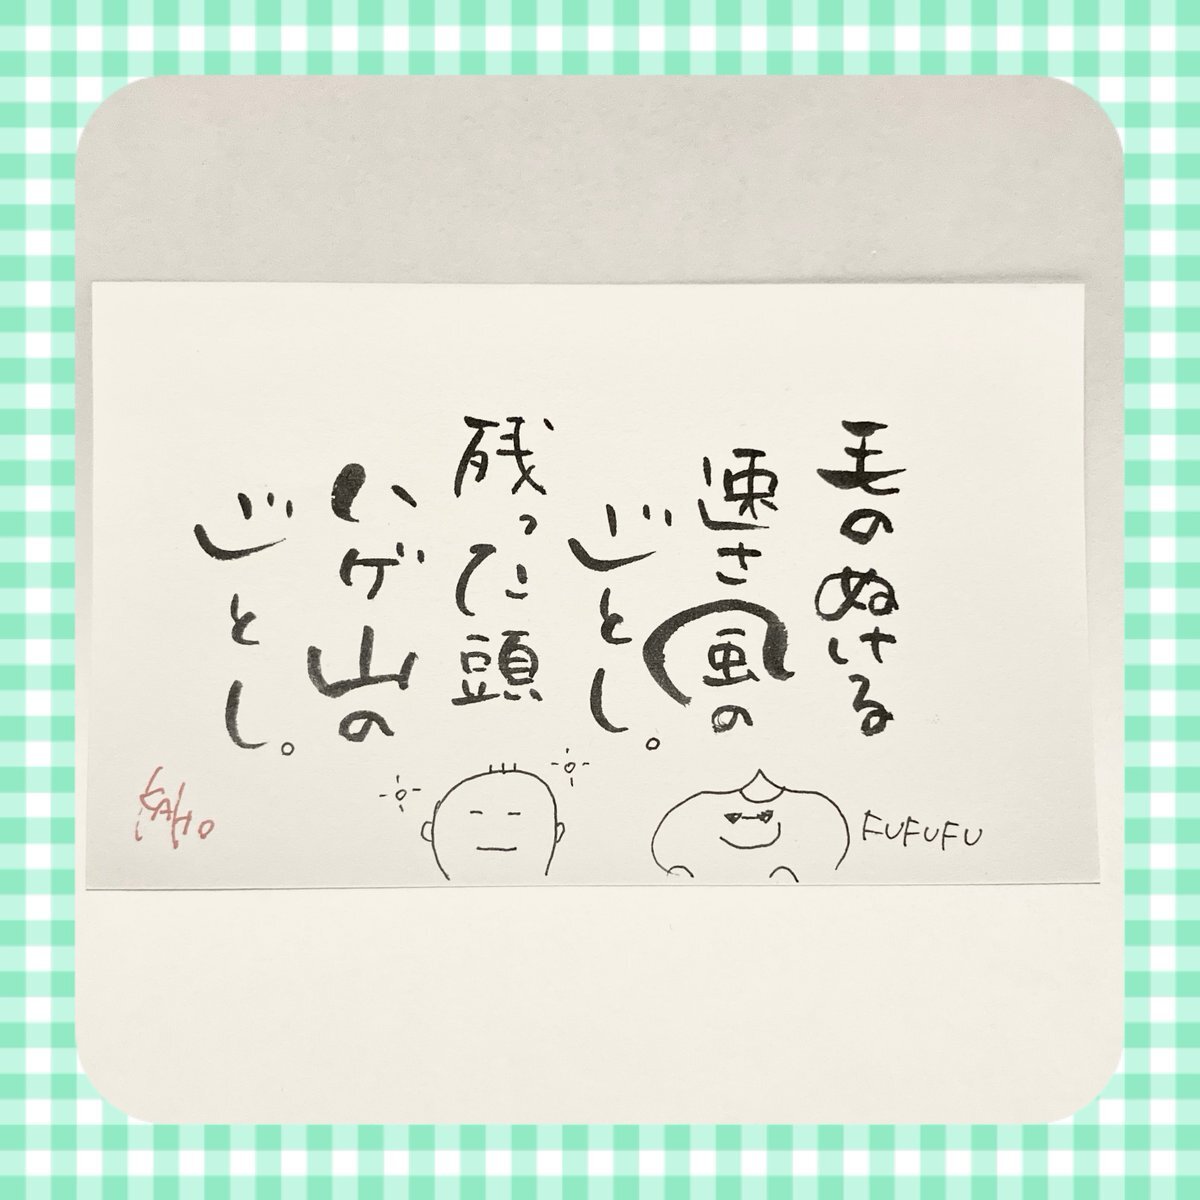 毛のぬける
速さ風の
ごとし。
残った頭
ハゲ山の
ごとし。
FUFUFU
KAHO